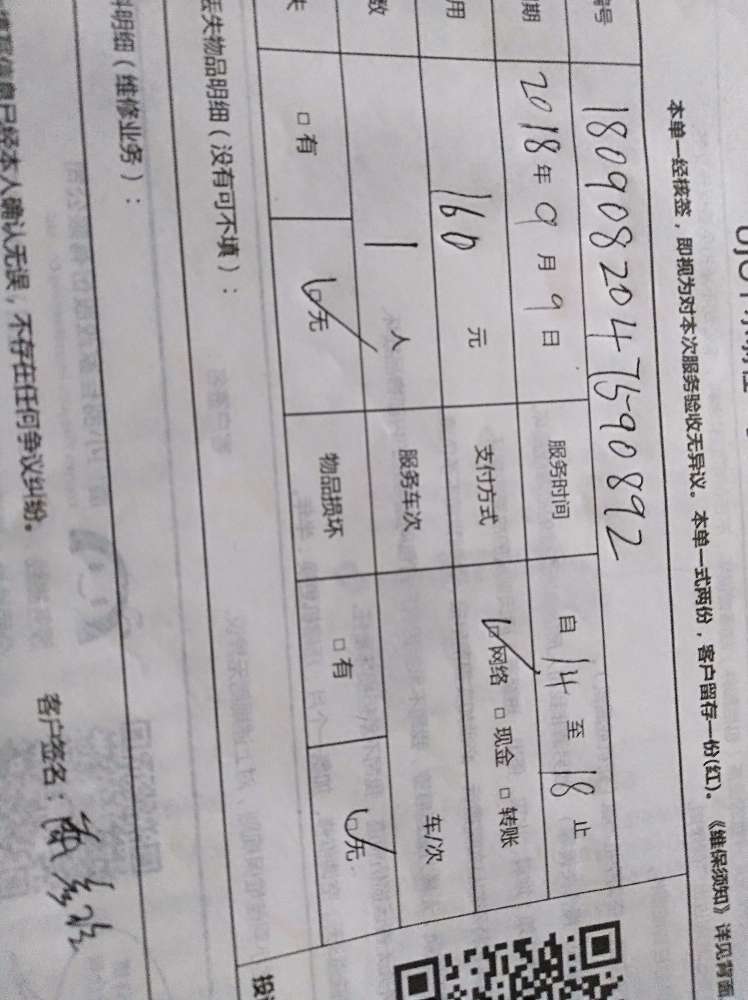 本单一经核签，即视为对本次服务验收无异议。本单一式两份，客户留存一份(红)。《维保须知》详见背面
编号 180908204 7590892
期 2018年9月9日 服务时间 自14至18止
用 160元 支付方式 ☑网络 □现金 □转账
数 1人 服务车次 车/次
失 □有 ☑无 物品损坏 □有 ☑无
丢失物品明细（没有可不填）：
料明细（维修业务）：
信息已经本人确认无误，不存在任何争议纠纷。
客户签名：